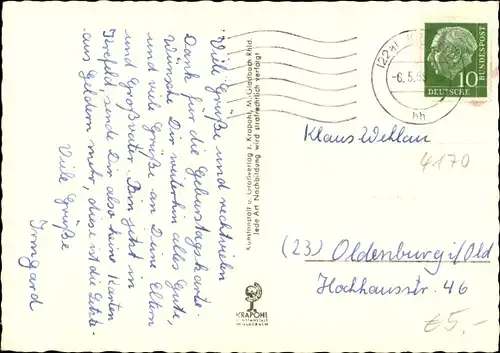 Viele Grüße und rechtvielen
Dank für die Geburtagskarte.
Wünsche Dir weiterhin alles Gute,
und viele Grüße an Deine Eltern
und Großvater. Bin jetzt in
Krefeld, sende Dir also keine Karten
aus Geldern mehr, dies ist die letzte.
Viele Grüße
Irmgard
Kunstanstalt u. Grafverlag J. Krapohl, M.Gladbach Rhld.
Jede Art Nachbildung wird strafrechtlich verfolgt
KRAPOHL
(22a)
-6.5.
hh
10
DEUTSCHE
BUNDESPOST
Klaus Wehlau
4170
(23) Oldenburg i/Old
Hochhausstr. 46
€5.-